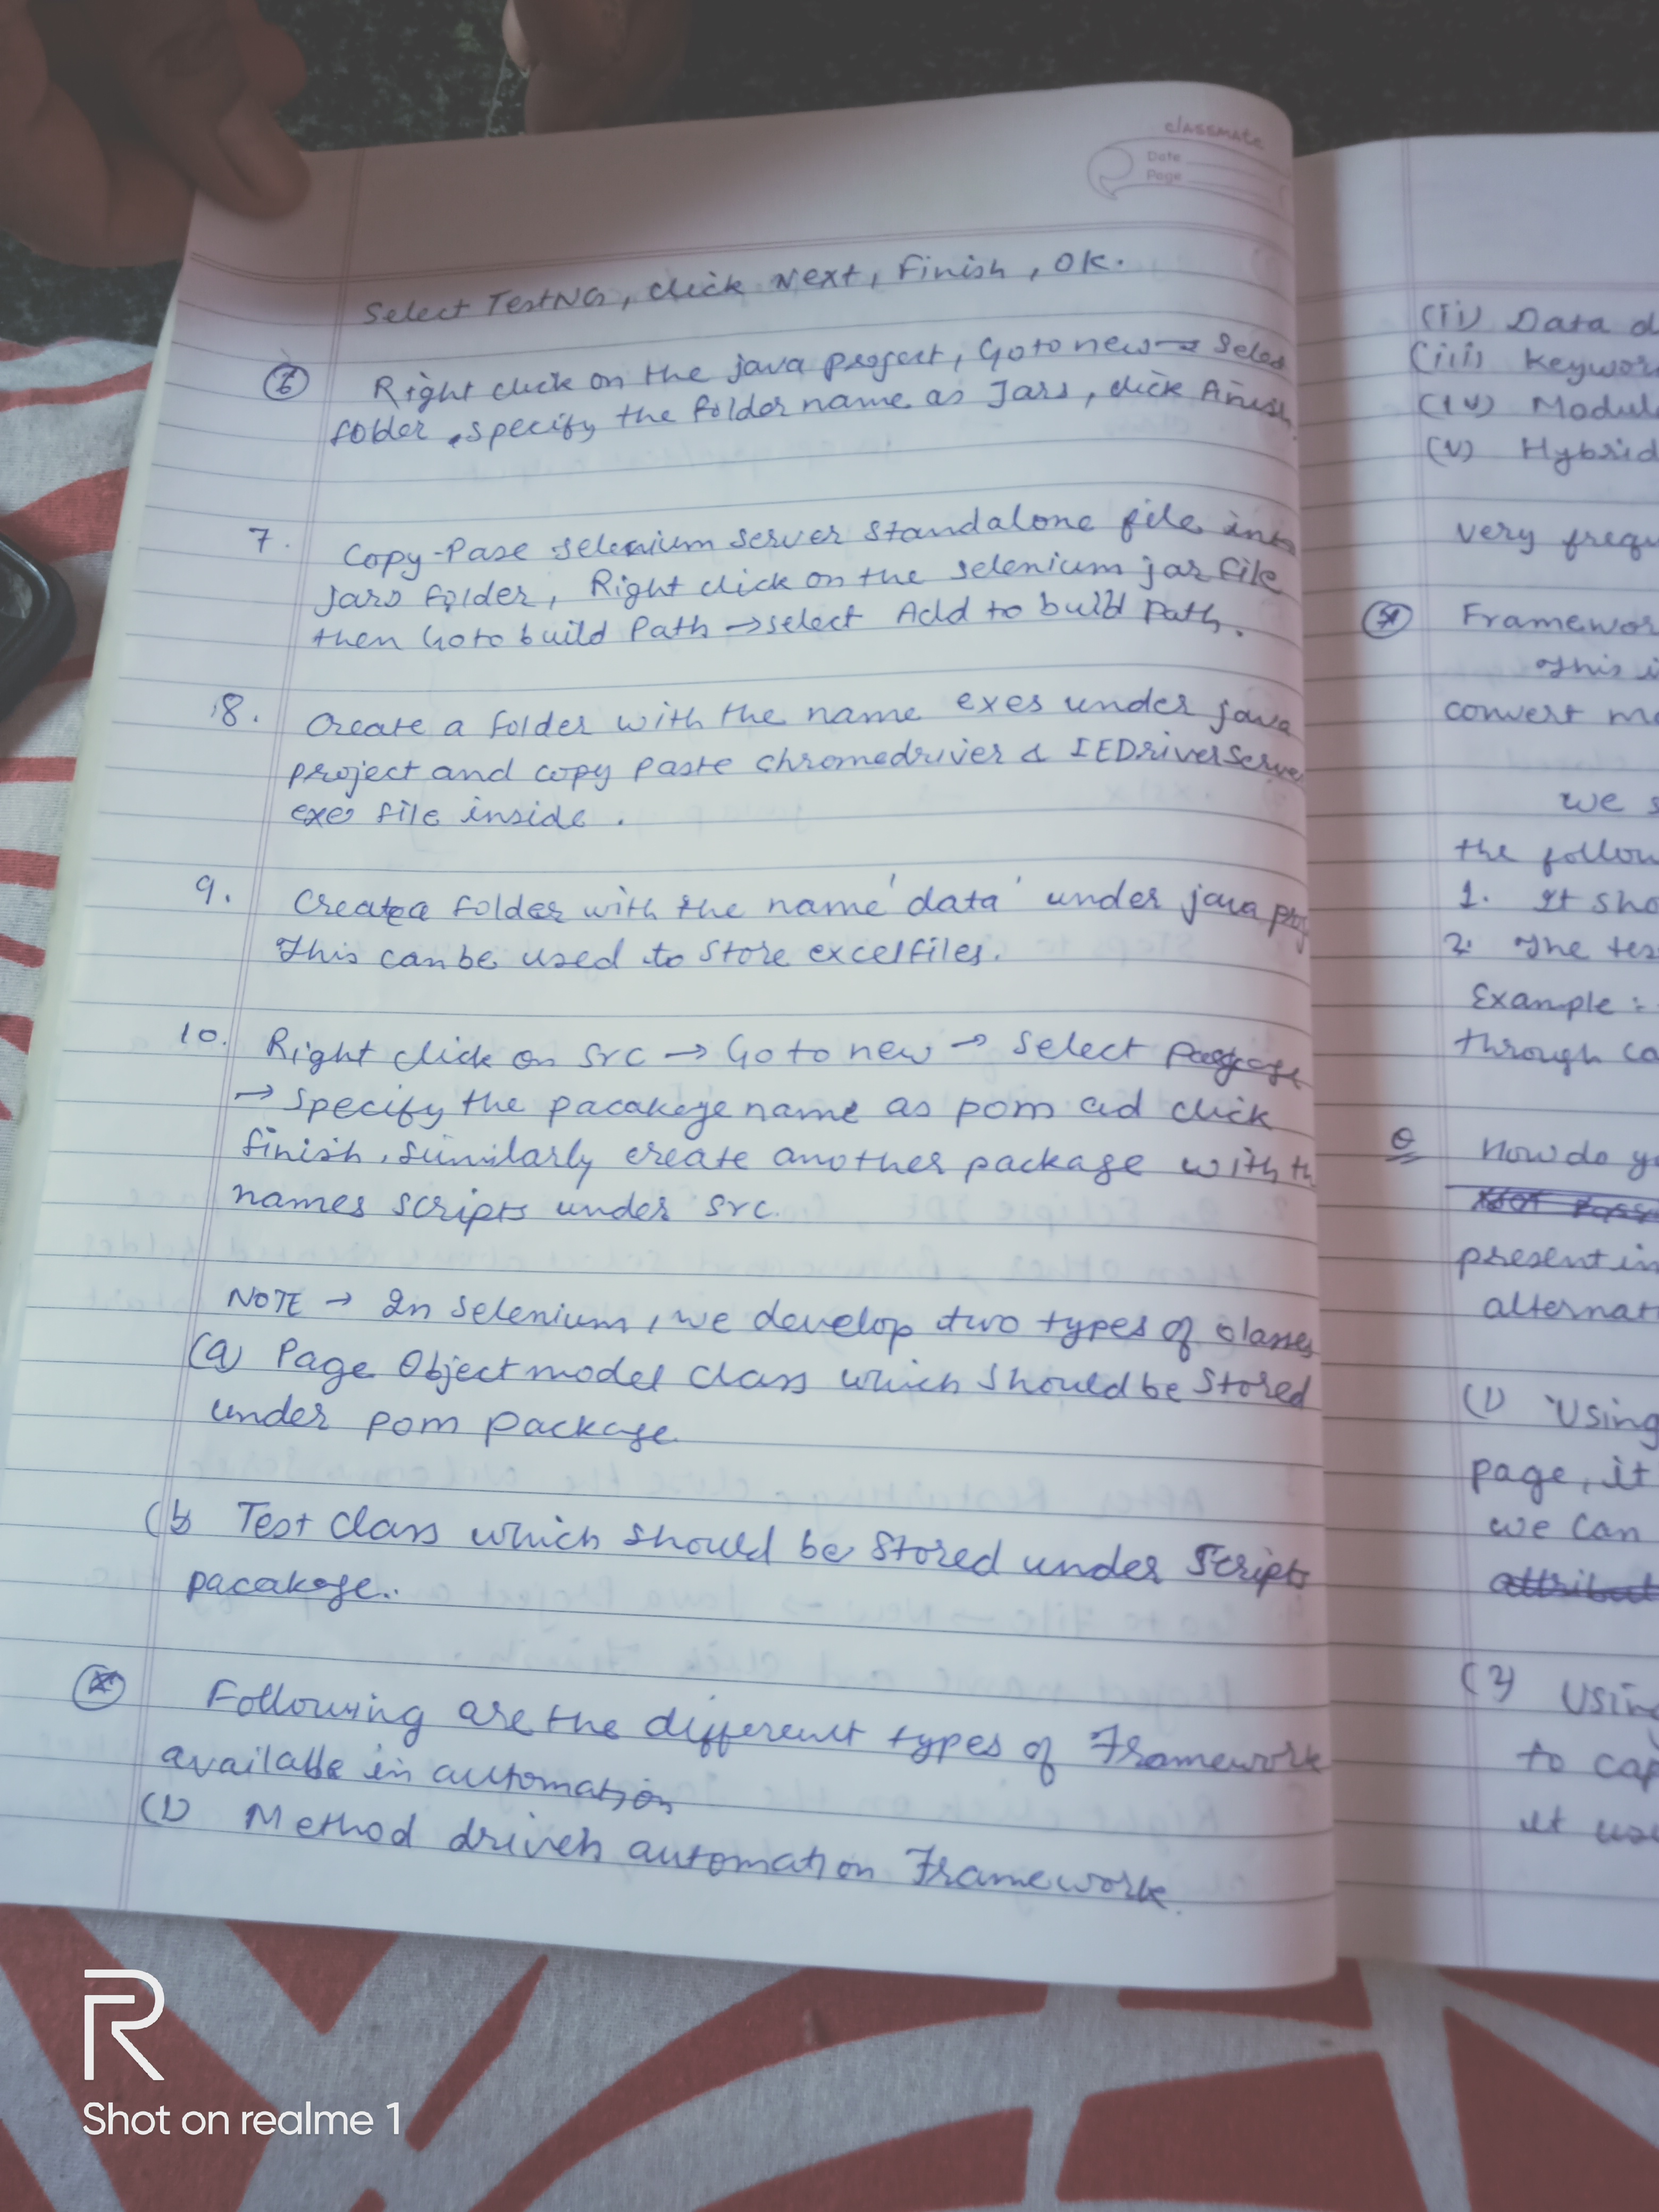 classmate
Date
Page
Select TestNG, click Next, Finish, OK.
6 Right click on the java project, Goto new → Selec
folder, specify the folder name as Jars, click Finish.
7. Copy-Pase selenium server standalone file into
Jars folder, Right click on the selenium jar file
then Goto build Path → select Add to build Path.
8. Create a folder with the name exes under java
project and copy paste chromedriver & IEDriverServe
exe file inside.
9. Create a folder with the name 'data' under java proj
This can be used to store excel files.
10. Right click on src → Go to new → Select package
→ Specify the pacakege name as pom ad click
finish. Similarly create another package with th
names scripts under src.
NOTE → In selenium, we develop two types of classes
(a) Page Object model class which should be stored
under pom package
(b) Test class which should be stored under Scripts
pacakage..
Following are the different types of Framework
available in automation
(1) Method driven automation Framework.
(ii) Data d
(iii) Keywor
(iv) Modul
(v) Hybrid
very frequ
Framewor
This i
convert ma
we s
the follow
1. It sho
2. The tes
Example :-
through co
Q How do yo
present in
alternat
(1) Using
page, it
we can
(2) Using
to cap
it use
R
Shot on realme 1